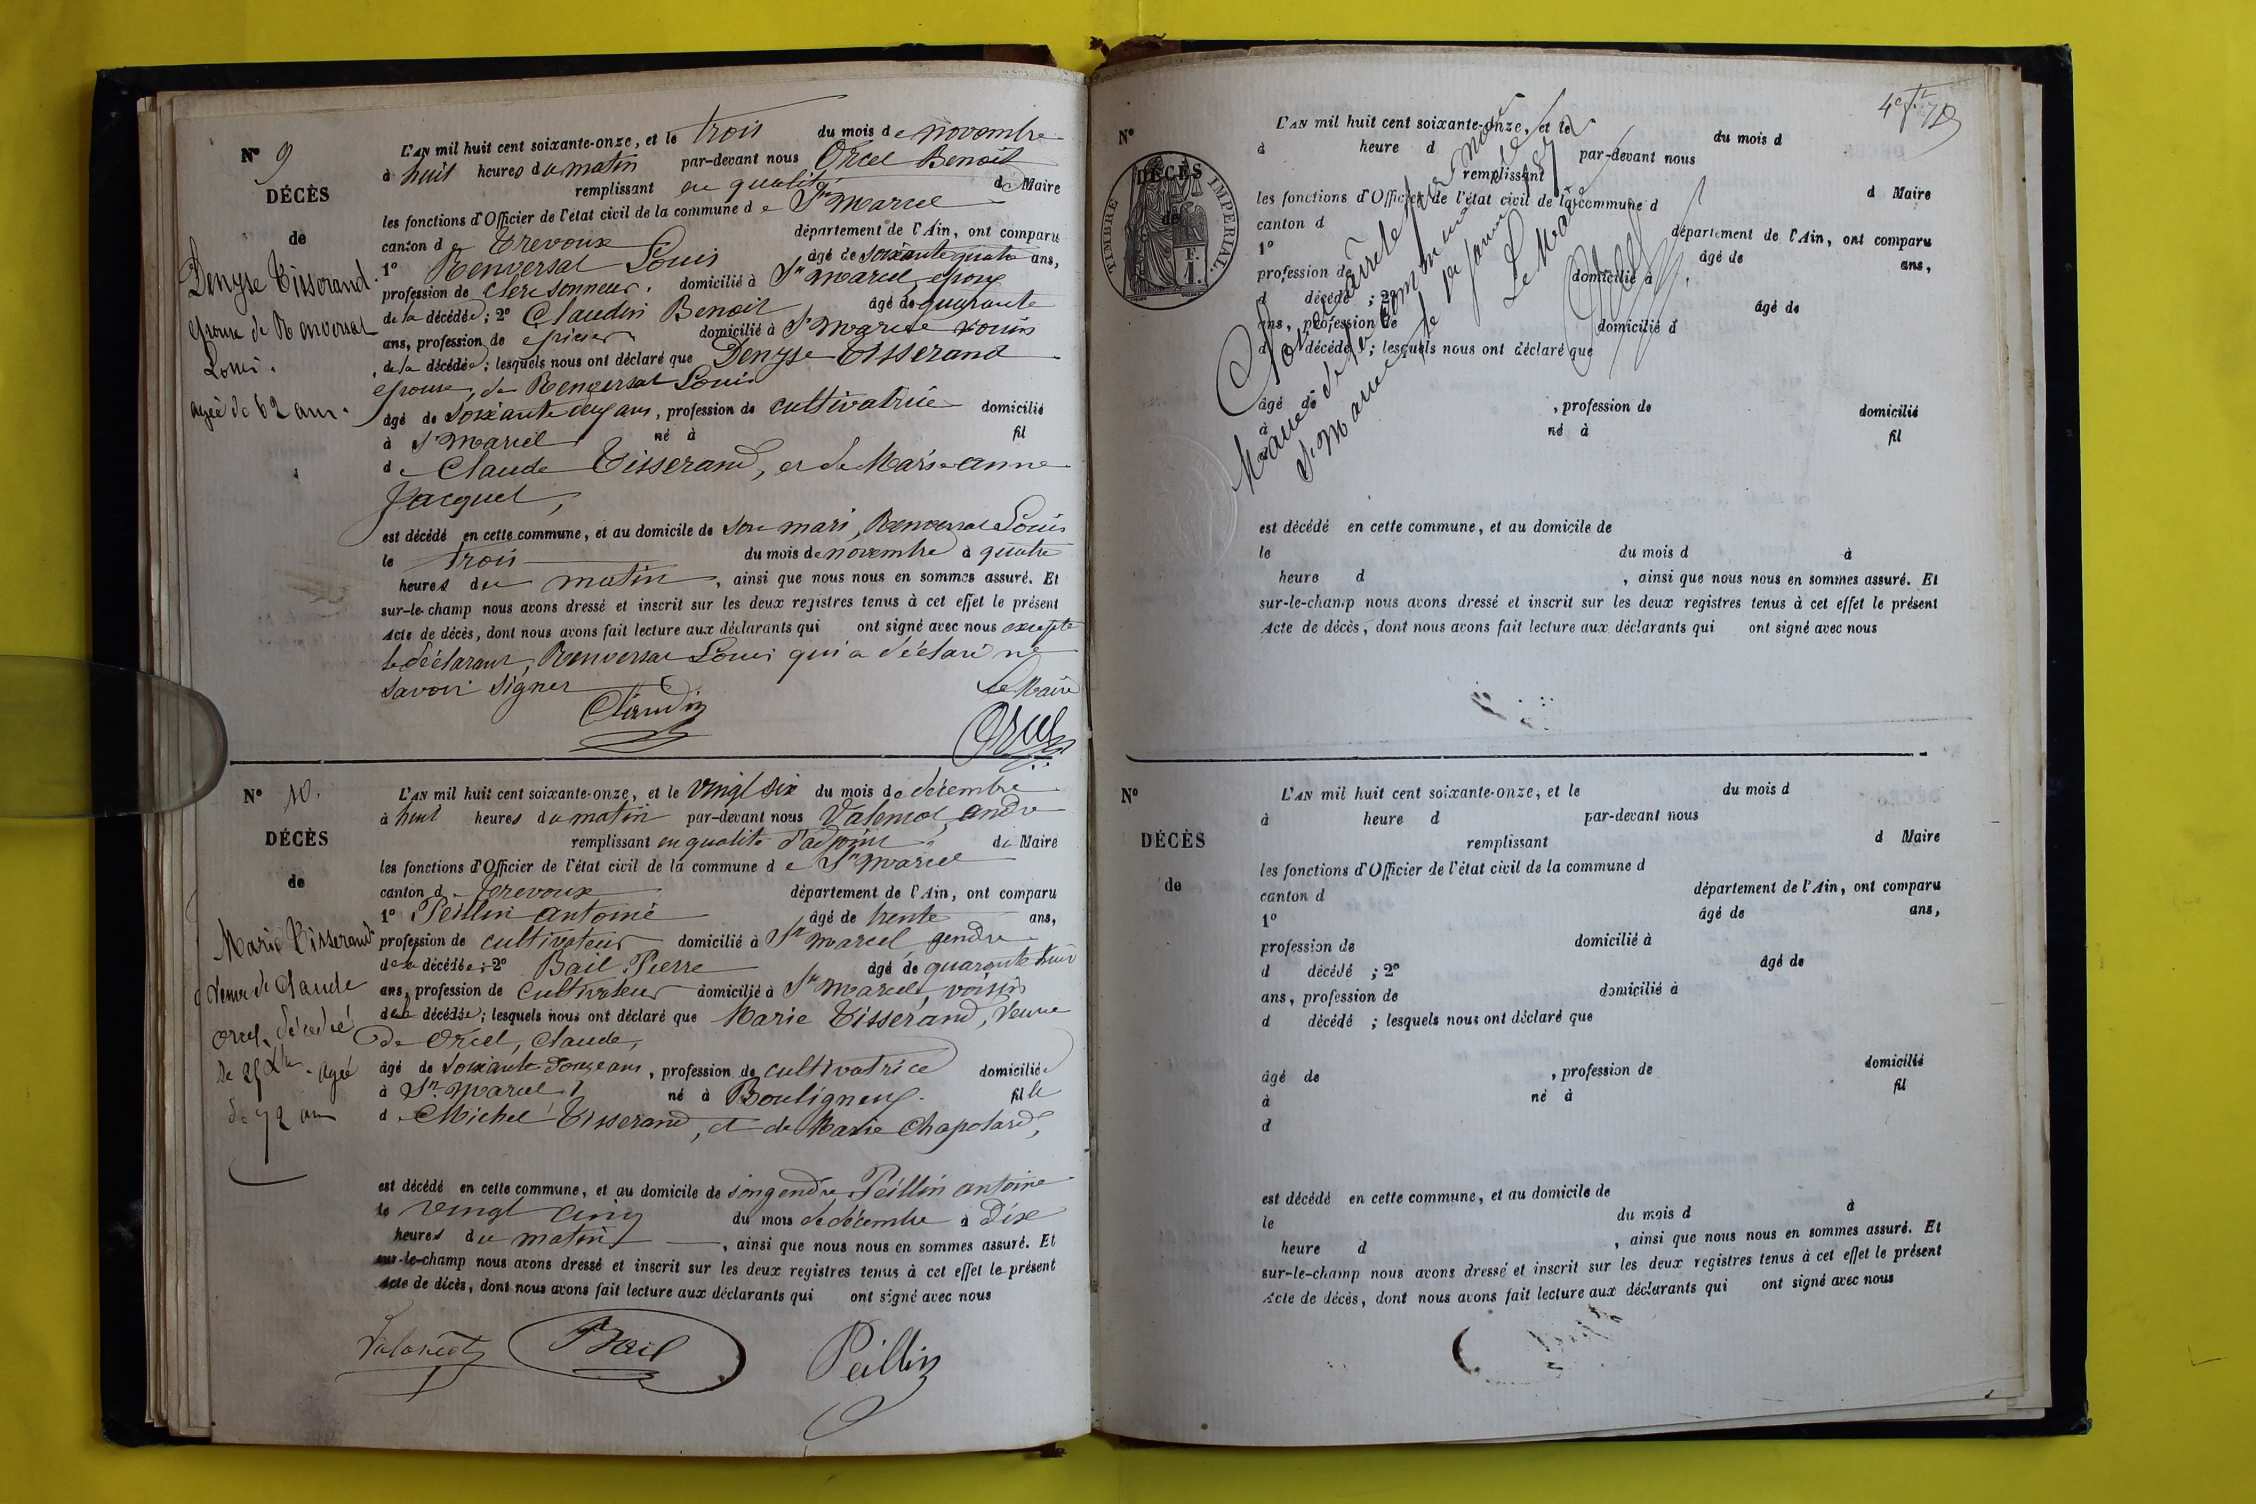 N° 9
DÉCÈS
de
Denyse Tisserand
épouse de Renversat
Louis.
agée de 62 ans.
L'AN mil huit cent soixante-onze, et le trois du mois de novembre
à huit heures du matin par-devant nous Orcel Benoit
remplissant en qualité de Maire
les fonctions d'Officier de l'état civil de la commune de St Marcel
canton de Trevoux département de l'Ain, ont comparu
1° Renversat Louis âgé de soixante quatre ans,
profession de clerc sonneur. domicilié à St Marcel, époux
de la décédée; 2° Claudin Benoit âgé de quarante
ans, profession de épicier domicilié à St Marcel voisin
de la décédée; lesquels nous ont déclaré que Denyse Tisserand
épouse, de Renversat Louis
âgé de soixante deux ans, profession de cultivatrice domicilié
à St Marcel né à fil
de Claude Tisserand, et de Marie anne
Jacquet,
est décédé en cette commune, et au domicile de son mari, Renversat Louis
le trois du mois de novembre à quatre
heures du matin, ainsi que nous nous en sommes assuré. Et
sur-le-champ nous avons dressé et inscrit sur les deux registres tenus à cet effet le présent
Acte de décès, dont nous avons fait lecture aux déclarants qui ont signé avec nous excepté
le déclarant, Renversat Louis qui a déclaré ne
savoir signer
Le Maire
Claudin
Orcel
N° 10.
DÉCÈS
de
Marie Tisserand
Veuve de Claude
Orcel, décédé
le 25 Xbre. agée
de 72 ans
L'AN mil huit cent soixante-onze, et le vingt six du mois de décembre
à huit heures du matin par-devant nous Valensot, andré
remplissant en qualité d'adjoint de Maire
les fonctions d'Officier de l'état civil de la commune de St Marcel
canton de Trevoux département de l'Ain, ont comparu
1° Peillin antoine âgé de trente ans,
profession de cultivateur domicilié à St Marcel, gendre
de la décédée; 2° Bail Pierre âgé de quarante huit
ans, profession de cultivateur domicilié à St Marcel, voisin
de la décédée; lesquels nous ont déclaré que Marie Tisserand, Veuve
de Orcel, Claude,
âgé de soixante douze ans, profession de cultivatrice domiciliée
à St Marcel né à Bouligneux. fille
de Michel Tisserand, et de Marie Chapolard,
est décédé en cette commune, et au domicile de son gendre Peillin antoine
le vingt cinq du mois de décembre à Dix
heures du matin, ainsi que nous nous en sommes assuré. Et
sur-le-champ nous avons dressé et inscrit sur les deux registres tenus à cet effet le présent
Acte de décès, dont nous avons fait lecture aux déclarants qui ont signé avec nous
Bail
Peillin
N°
DÉCÈS
de
TIMBRE IMPERIAL.
1 F.
L'AN mil huit cent soixante-onze, et le du mois d
à heure d par-devant nous
remplissant d Maire
les fonctions d'Officier de l'état civil de la commune d
canton d département de l'Ain, ont comparu
1° âgé de ans,
profession de domicilié à
d décédé ; 2° âgé de
ans, profession de domicilié à
d décédé ; lesquels nous ont déclaré que
âgé de , profession de domicilié
à né à fil
d
Clos et arrêté par nous
Maire de la commune de
St Marcel le
Le Maire
Orcel
est décédé en cette commune, et au domicile de
le du mois d à
heure d , ainsi que nous nous en sommes assuré. Et
sur-le-champ nous avons dressé et inscrit sur les deux registres tenus à cet effet le présent
Acte de décès, dont nous avons fait lecture aux déclarants qui ont signé avec nous
N°
DÉCÈS
de
L'AN mil huit cent soixante-onze, et le du mois d
à heure d par-devant nous
remplissant d Maire
les fonctions d'Officier de l'état civil de la commune d
canton d département de l'Ain, ont comparu
1° âgé de ans,
profession de domicilié à
d décédé ; 2° âgé de
ans, profession de domicilié à
d décédé ; lesquels nous ont déclaré que
âgé de , profession de domicilié
à né à fil
d
est décédé en cette commune, et au domicile de
le du mois d à
heure d , ainsi que nous nous en sommes assuré. Et
sur-le-champ nous avons dressé et inscrit sur les deux registres tenus à cet effet le présent
Acte de décès, dont nous avons fait lecture aux déclarants qui ont signé avec nous